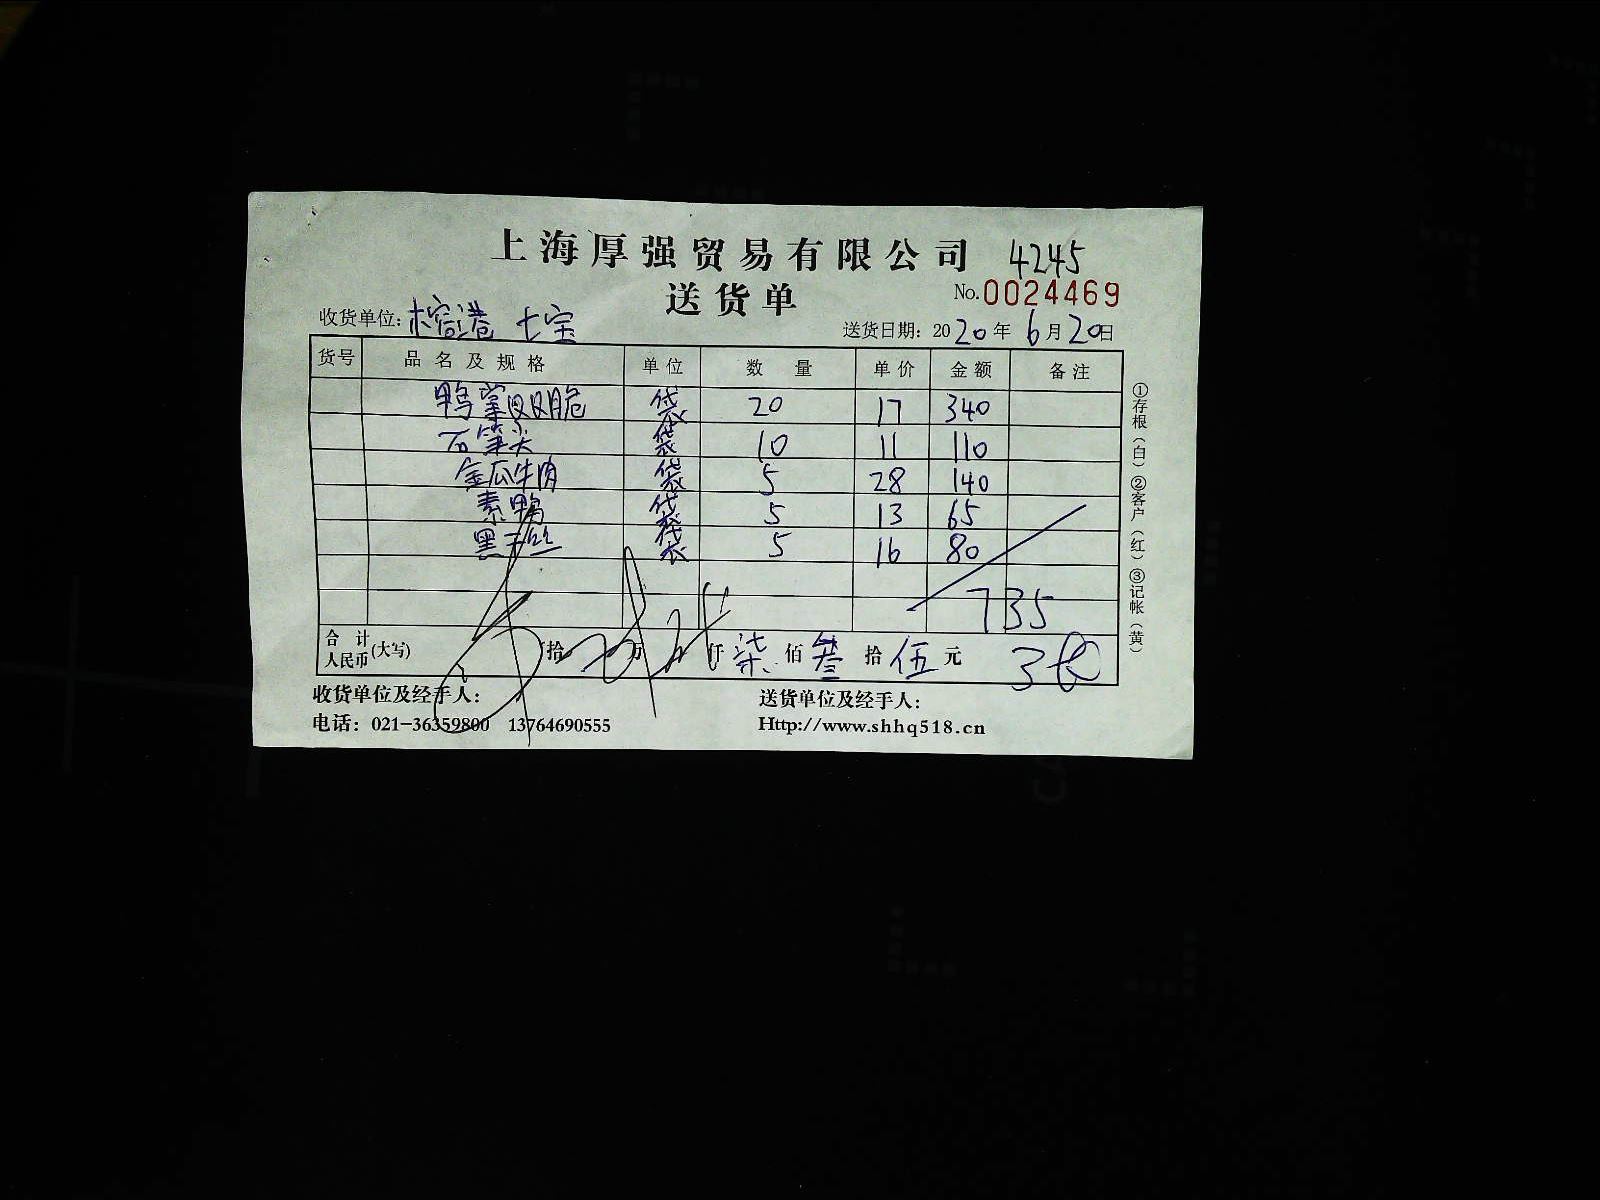 上海厚强贸易有限公司 4245
送货单 No.0024469
收货单位: 榕港 七宝 送货日期: 2020年6月20日
货号 品名及规格 单位 数量 单价 金额 备注
鸭掌双脆 袋 20 17 340
石笋尖 袋 10 11 110
金瓜牛肉 袋 5 28 140
素鸭 袋 5 13 65
黑干丝 袋 5 16 80
735
合计人民币(大写) 拾 万 仟 柒 佰 叁 拾 伍 元
收货单位及经手人: 送货单位及经手人:
电话: 021-36359800 13764690555 Http://www.shhq518.cn
①存根(白)②客户(红)③记帐(黄)